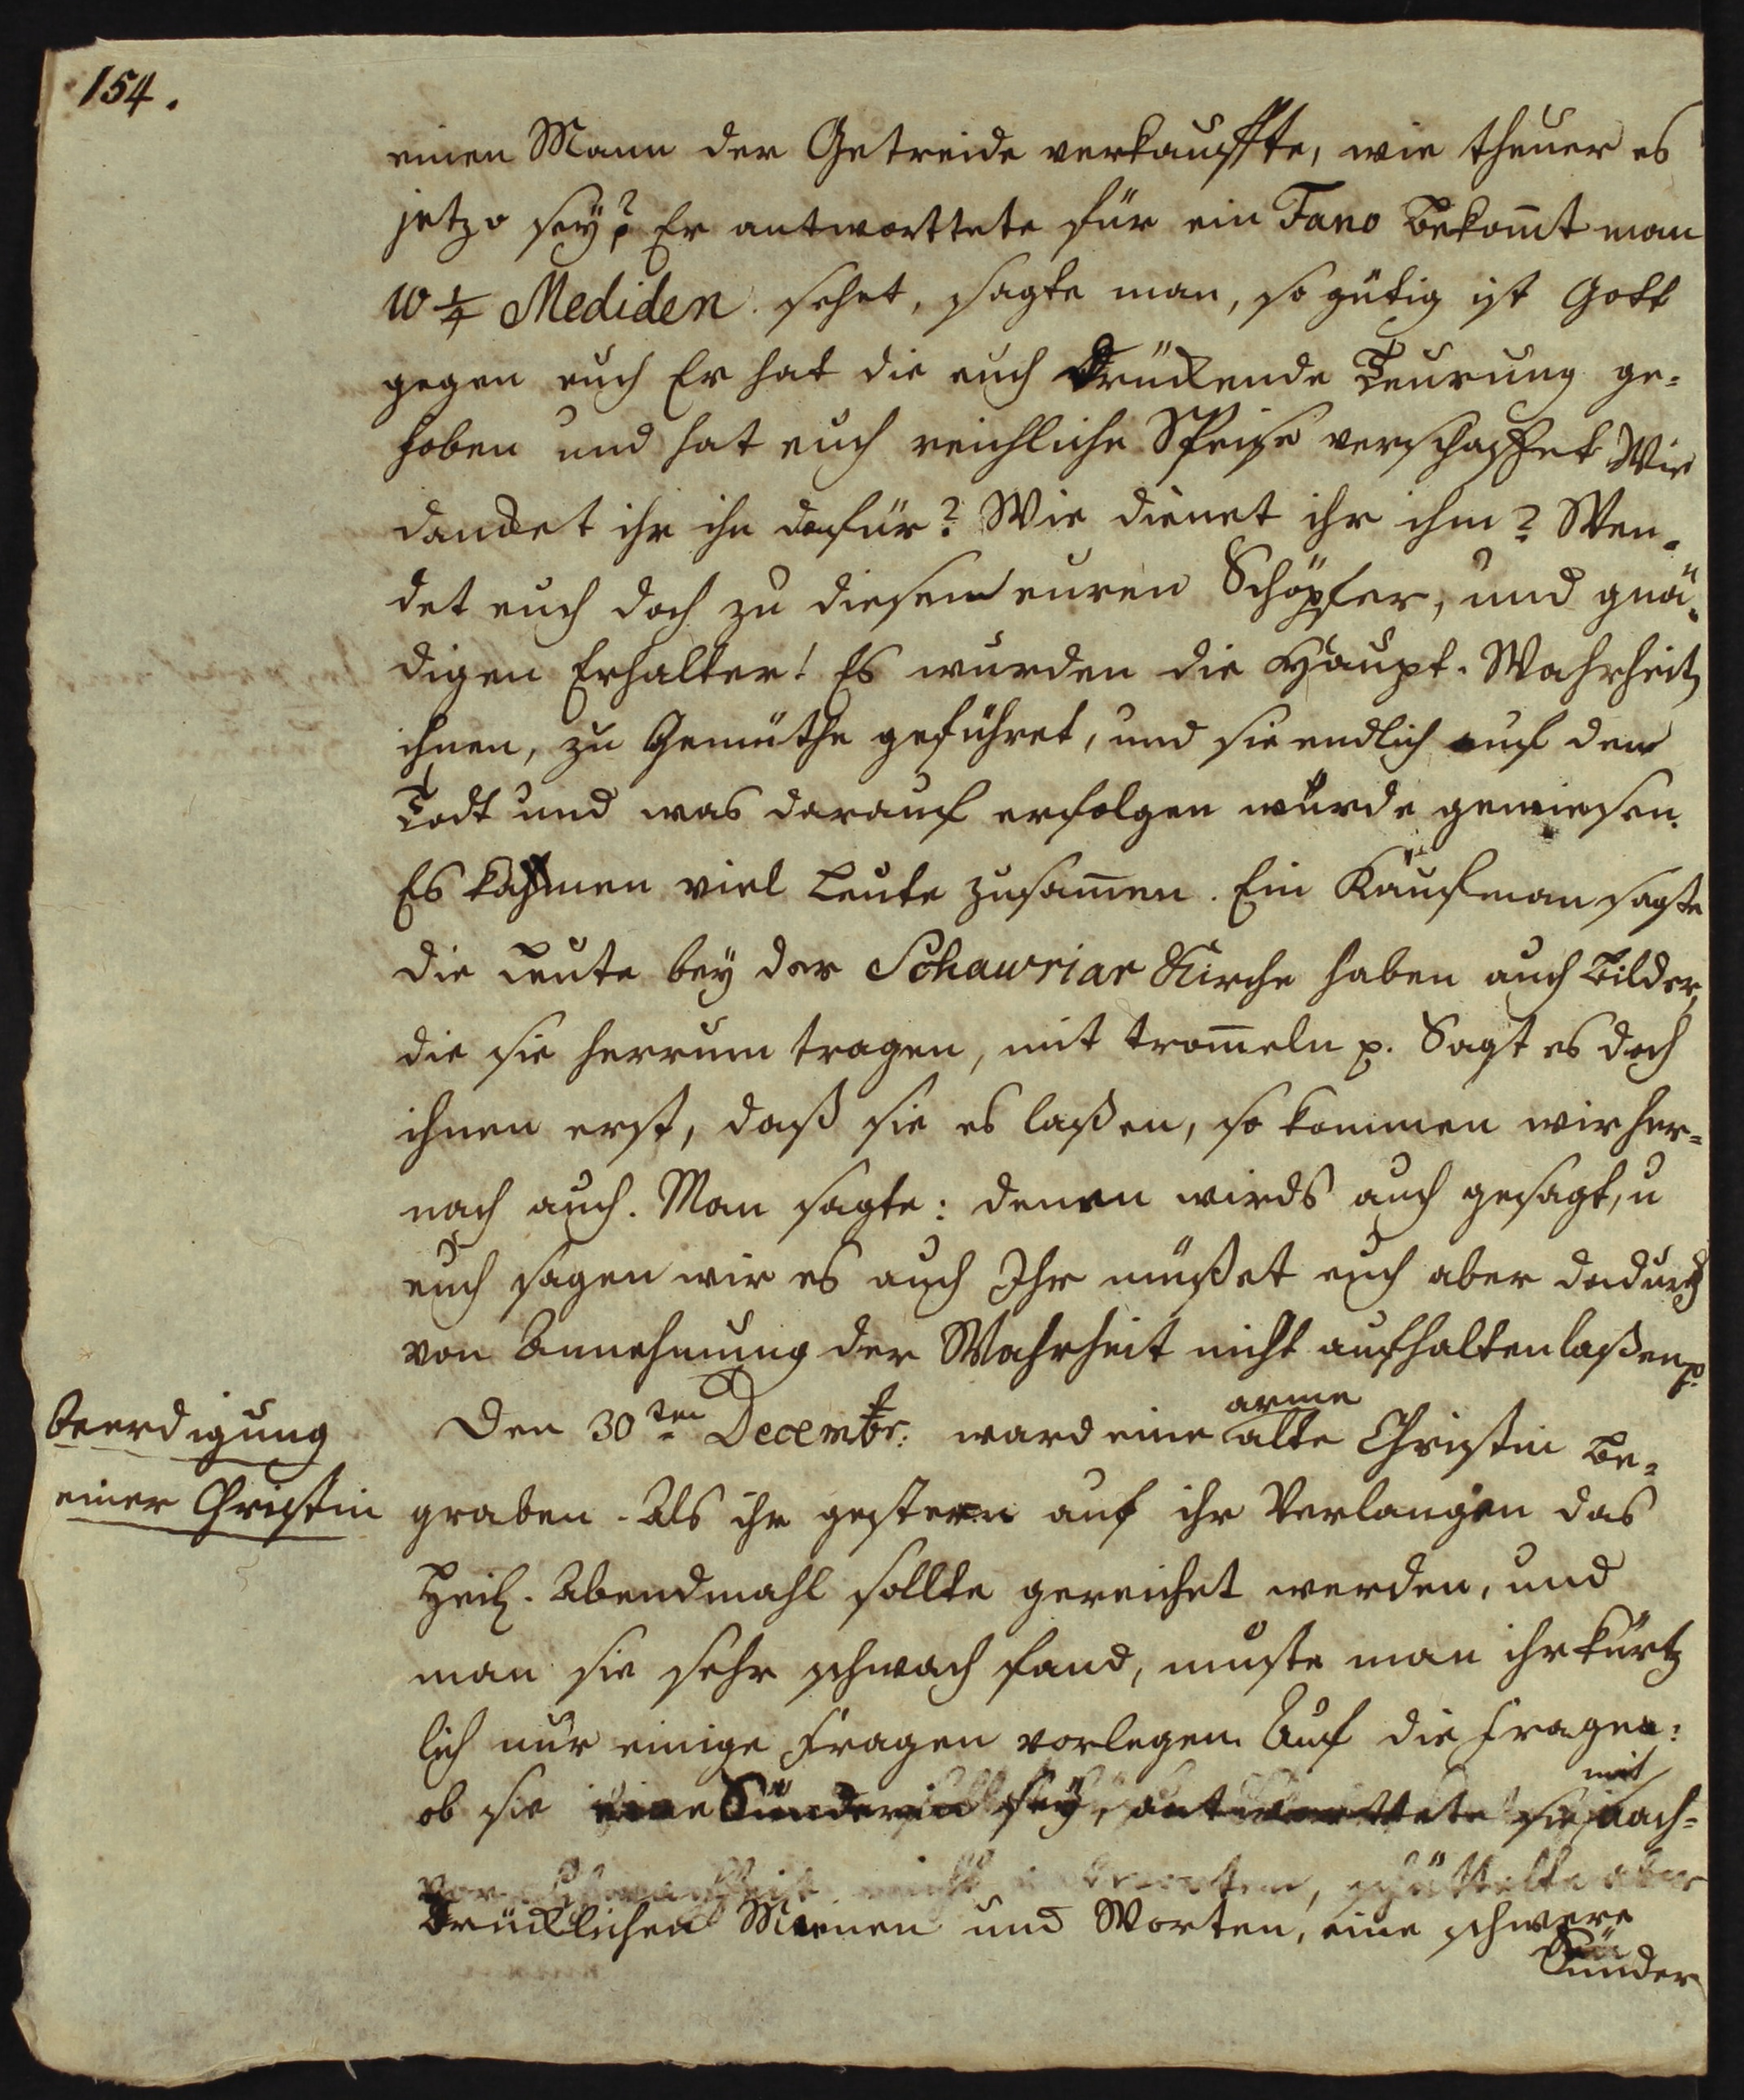 154.
einen Mann der Getreide verkauffte, wie theuer es
jetzo sey? Er antworttete für ein Fano bekom̄t man
10 1/4 Mediden. sehet, sagte man, so gütig ist Gott
gegen euch Er hat die euch drückende Teurung ge=
hoben und hat euch reichliche Speise verschaffet Wie
dancket ihr ihn dafür? Wie dienet ihr ihm? Wen=
det euch doch zu diesem euren Schöpfer, und gnä=
digen Erhalter! Es wurden die Haupt-Wahrheiten
ihnen, zu Gemüthe geführet, und sie endlich auf den
Todt und was darauf erfolgen würde gewiesen.
Es kahmen viel Leute zusam̄en. Ein Kaufman sagte
die Leute bey der Schawriar Kirche haben auch Bilder,
die sie herrum tragen, mit trom̄eln p. Sagt es doch
ihnen erst, daß sie es laßen, so kommen wir her=
nach auch. Man sagte: denen wirds auch gesagt, u
euch sagen wir es auch Ihr müßet euch aber dadurch
von Annehmung der Wahrheit nicht aufhalten laßen p.
Beerdigung
einer Christin
Den 30ten Decembr: ward eine arme alte Christin be=
graben. Als ihr gestern auf ihr Verlangen das
Heil. Abendmahl sollte gereichet werden, und
man sie sehr schwach fand, muste man ihr kürtz
lich nur einige Fragen vorlegen. Auf die Fragen:
ob sie eine Sünderin sey, antworttete sie mit nach=
drücklichen Mienen und Worten, eine schwere
Sünder